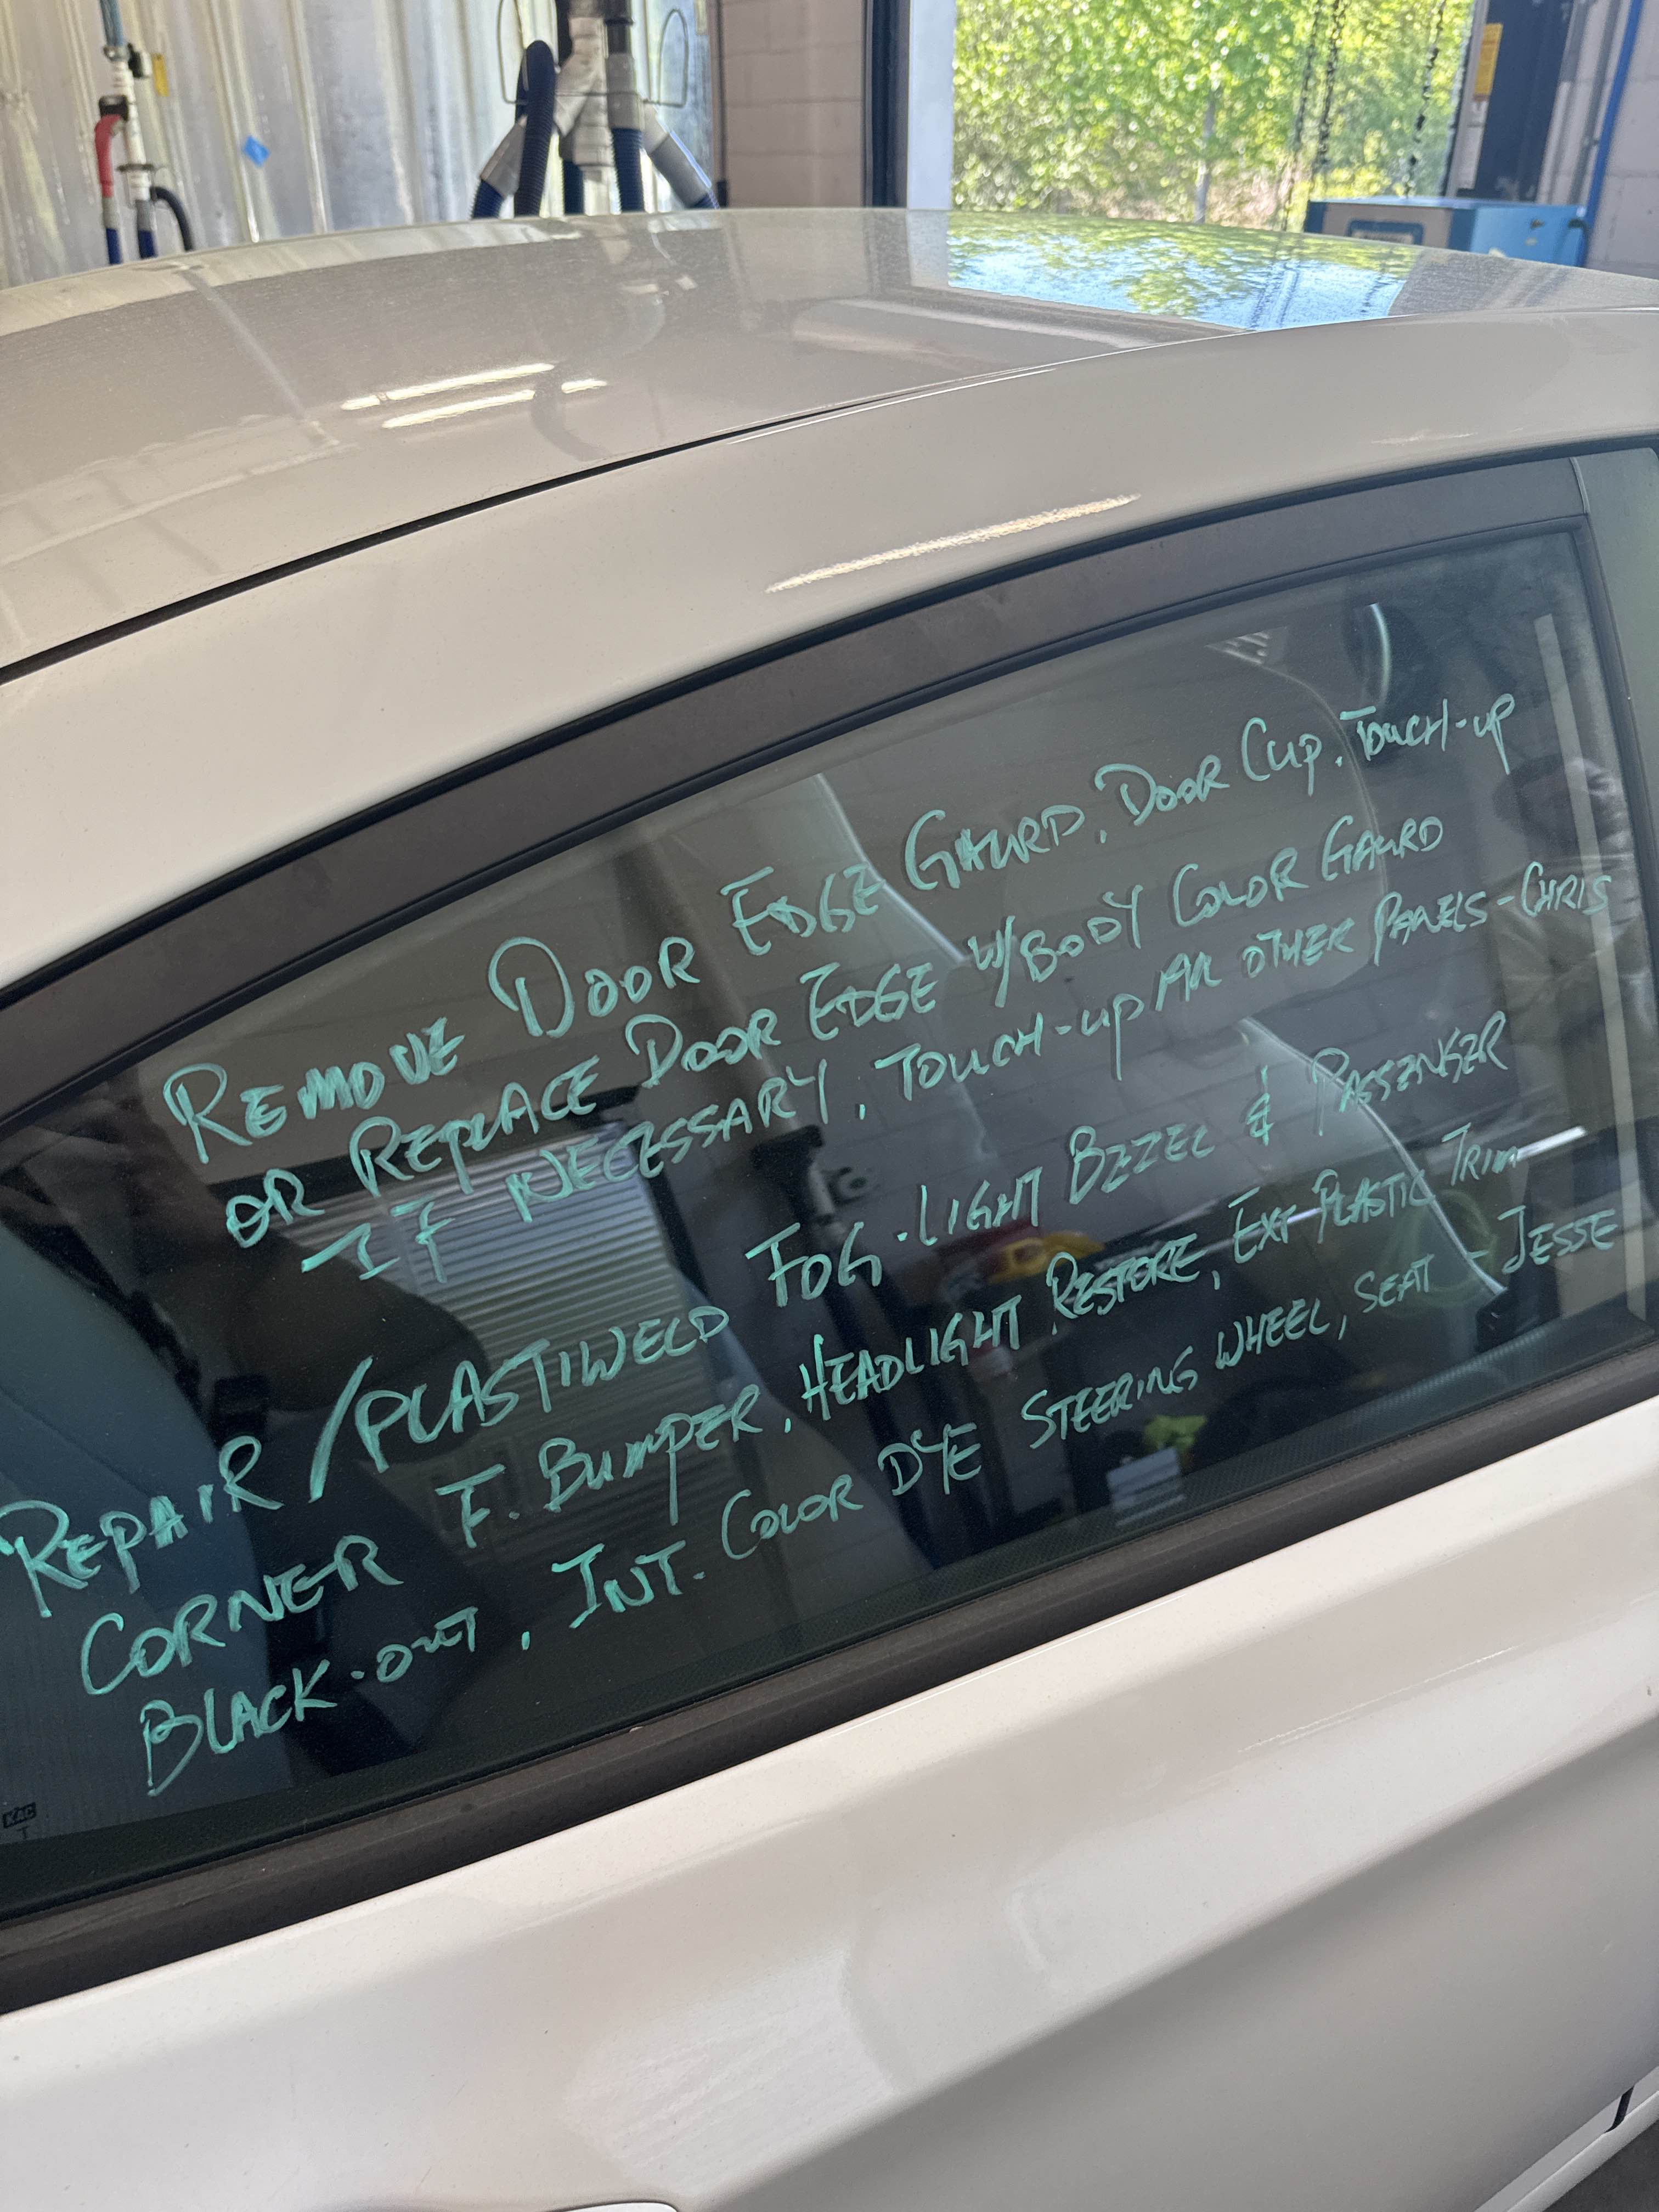 REMOVE DOOR EDGE GAURD, DOOR CUP, TOUCH-UP
OR REPLACE DOOR EDGE W/BODY COLOR GAURD
IF NECESSARY, TOUCH-UP ALL OTHER PANELS-CHRIS
REPAIR/PLASTIWELD FOG-LIGHT BEZEL & PASSENGER
CORNER F. BUMPER, HEADLIGHT RESTORE, EXT PLASTIC TRIM
BLACK-OUT, INT. COLOR DYE STEERING WHEEL, SEAT - JESSE
KAC
T